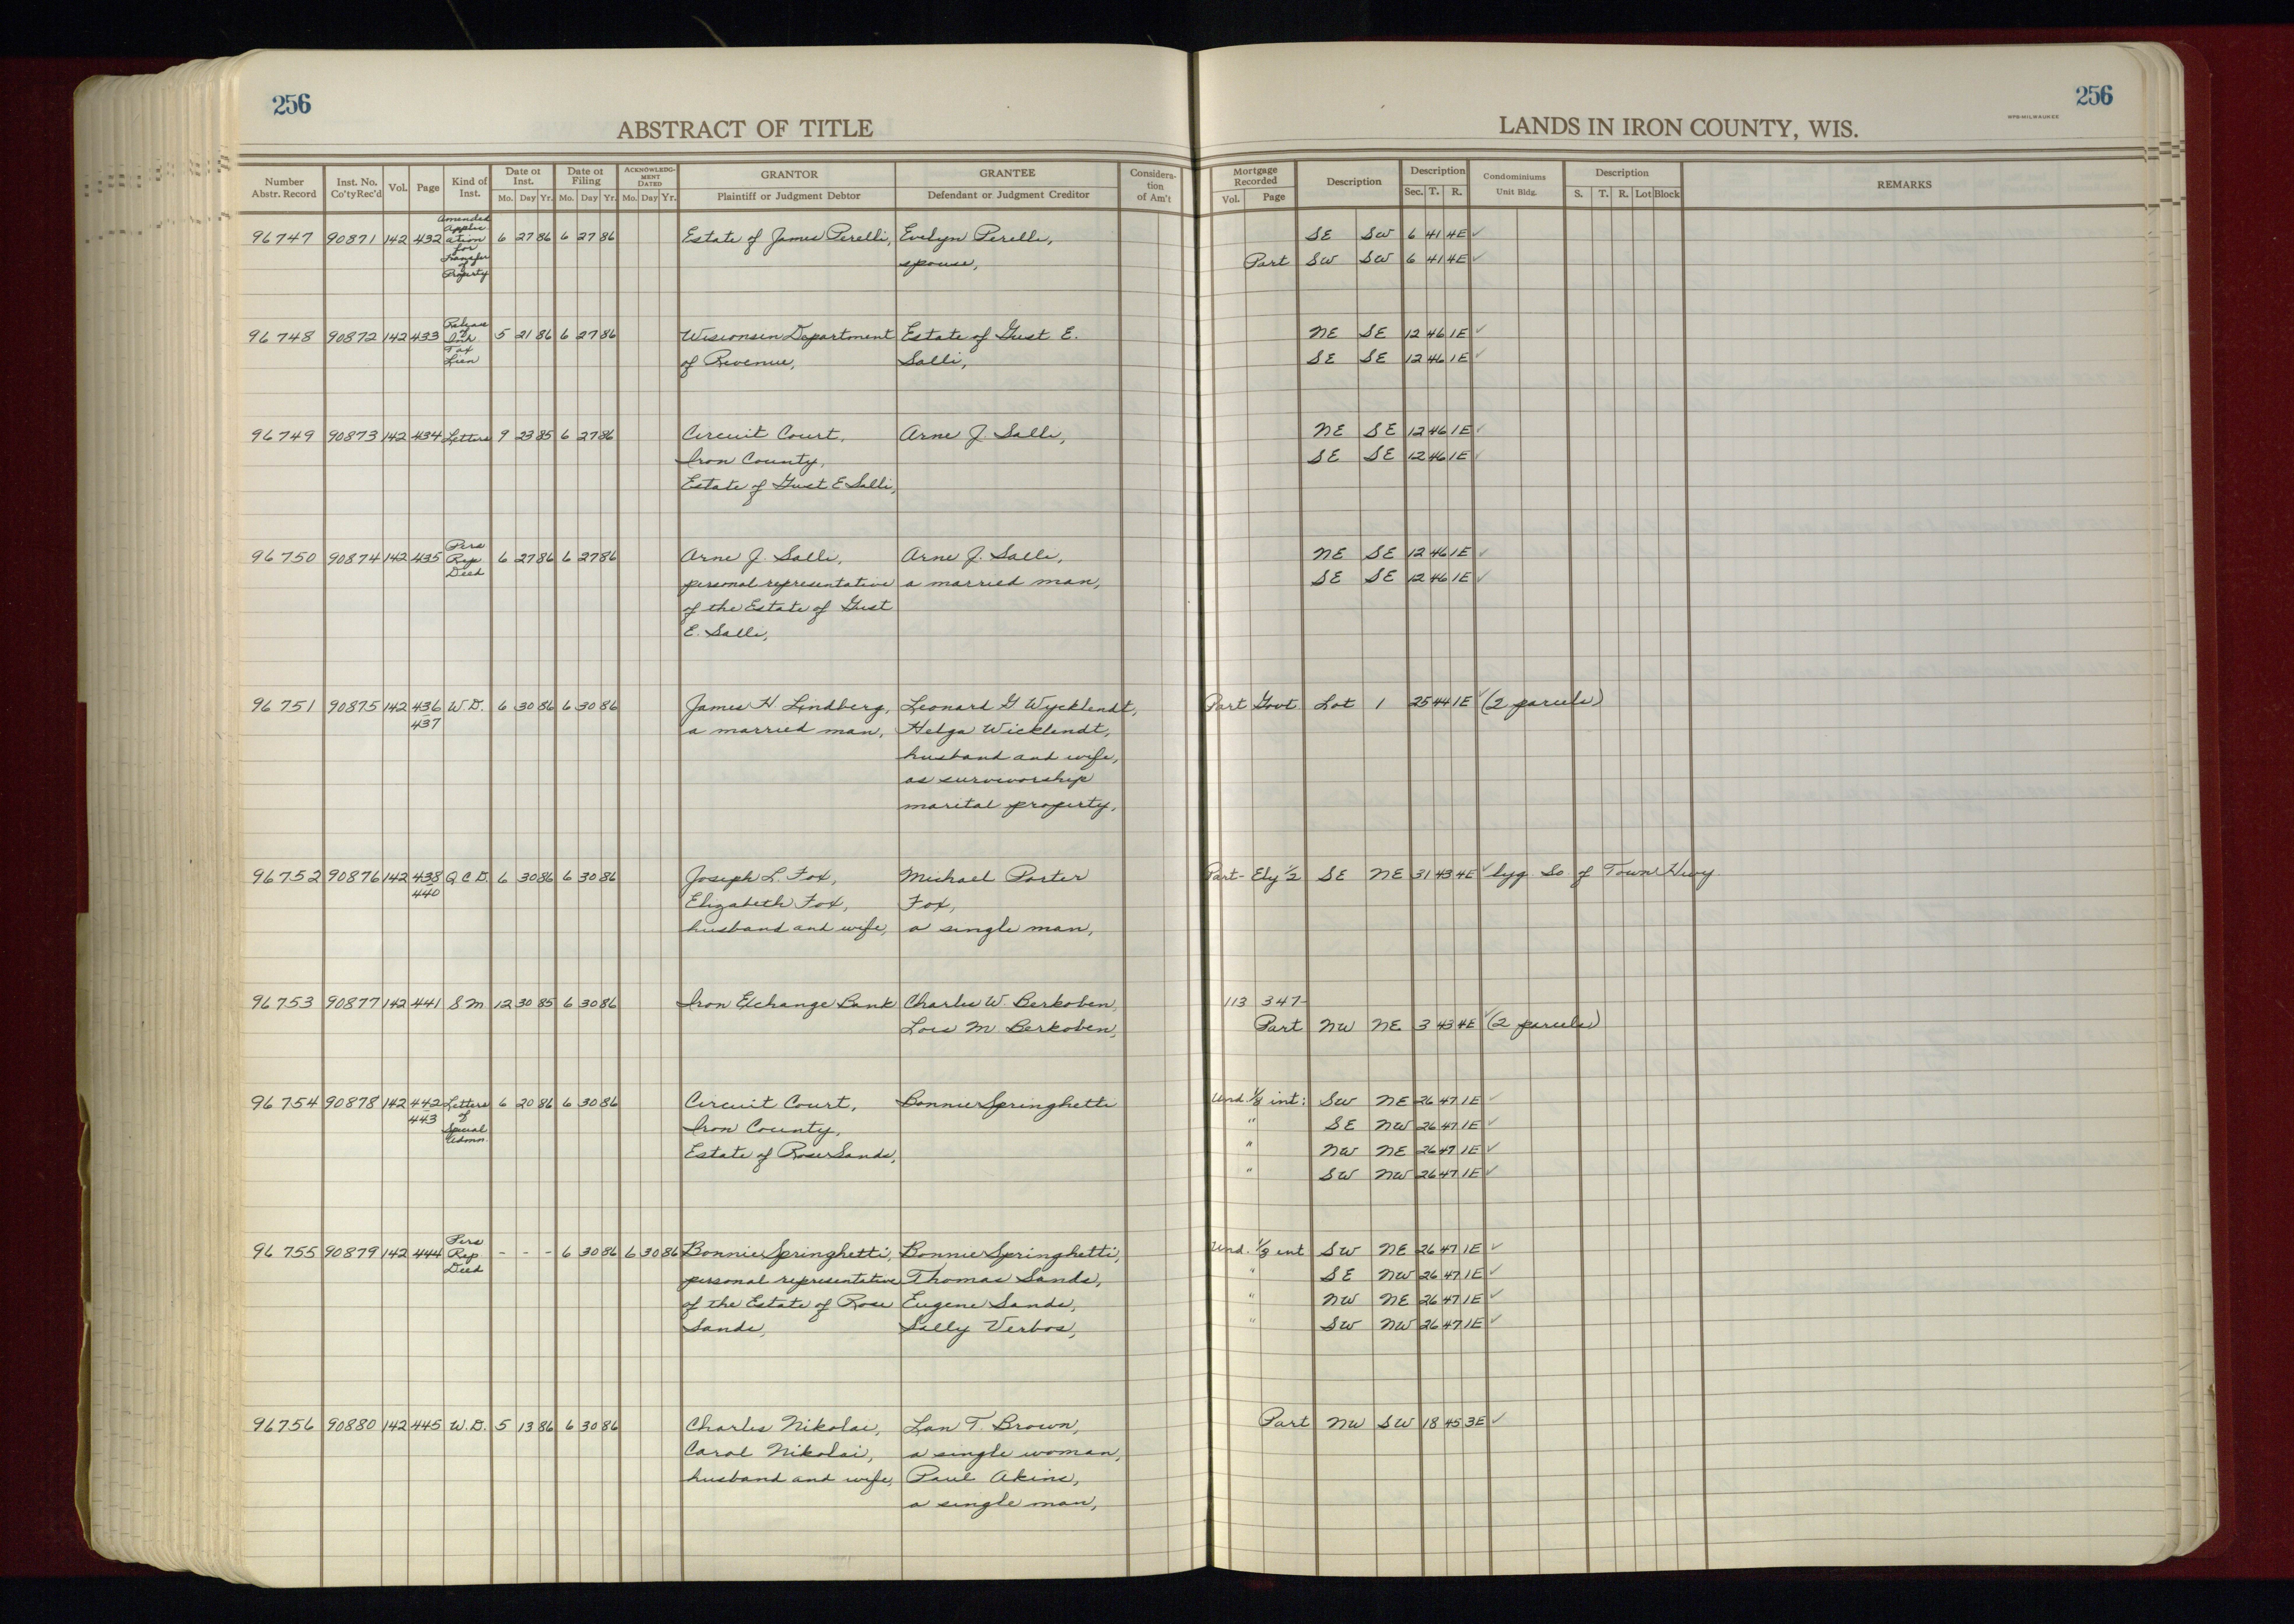 256
256
ABSTRACT OF TITLE
LANDS IN IRON COUNTY, WIS.
WPB-MILWAUKEE
Number Abstr. Record Inst. No. Co'ty Rec'd Vol. Page Kind of Inst. Date of Inst. Mo. Day Yr. Date of Filing Mo. Day Yr. ACKNOWLEDGMENT DATED Mo. Day Yr. GRANTOR Plaintiff or Judgment Debtor GRANTEE Defendant or Judgment Creditor Consideration of Am't Mortgage Recorded Vol. Page Description Description Sec. T. R. Condominiums Unit Bldg. Description S. T. R. Lot Block REMARKS
96747 90871 142 432 Amended Application for Transfer of Property 6 27 86 6 27 86 Estate of James Perelli, Evelyn Perelli, SE SW 6 41 4E ✓
spouse, Part SW SW 6 41 4E ✓
96748 90872 142 433 Release of Tax Lien 5 21 86 6 27 86 Wisconsin Department Estate of Gust E. NE SE 12 46 1E ✓
of Revenue, Salli, SE SE 12 46 1E ✓
96749 90873 142 434 Letters 9 23 85 6 27 86 Circuit Court, Arne J. Salli, NE SE 12 46 1E ✓
Iron County, SE SE 12 46 1E ✓
Estate of Gust E Salli,
96750 90874 142 435 Pers Rep Deed 6 27 86 6 27 86 Arne J. Salli, Arne J. Salli, NE SE 12 46 1E ✓
personal representative a married man, SE SE 12 46 1E ✓
of the Estate of Gust
E. Salli,
96751 90875 142 436 W.D. 6 30 86 6 30 86 James H. Lindberg, Leonard G Wycklendt, Part Govt Lot 1 25 44 1E ✓ (2 parcels)
437 a married man, Helga Wicklendt,
husband and wife,
as survivorship
marital property,
96752 90876 142 438 Q C D. 6 30 86 6 30 86 Joseph L. Fox, Michael Porter Part- Ely 1/2 SE NE 31 43 4E ✓ lyg So. of Town Hwy
440 Elizabeth Fox, Fox,
husband and wife, a single man,
96753 90877 142 441 S M 12 30 85 6 30 86 Iron Exchange Bank Charles W. Berkoben, 113 347-
Lois M. Berkoben, Part NW NE 3 43 4E ✓ (2 parcels)
96754 90878 142 442 443 Letters of Special Admn. 6 20 86 6 30 86 Circuit Court, Bonnie Springhetti Und. 1/3 int: SW NE 26 47 1E ✓
Iron County, " SE NW 26 47 1E ✓
Estate of Rose Sands, " NW NE 26 47 1E ✓
" SW NW 26 47 1E ✓
96755 90879 142 444 Pers Rep Deed - - - 6 30 86 6 30 86 Bonnie Springhetti, Bonnie Springhetti, Und. 1/3 int SW NE 26 47 1E ✓
personal representative Thomas Sands, " SE NW 26 47 1E ✓
of the Estate of Rose Eugene Sands, " NW NE 26 47 1E ✓
Sands, Sally Verbos, " SW NW 26 47 1E ✓
96756 90880 142 445 W.D. 5 13 86 6 30 86 Charles Nikolai, Lan T. Brown, Part NW SW 18 45 3E ✓
Carol Nikolai, a single woman,
husband and wife, Paul Akins,
a single man,